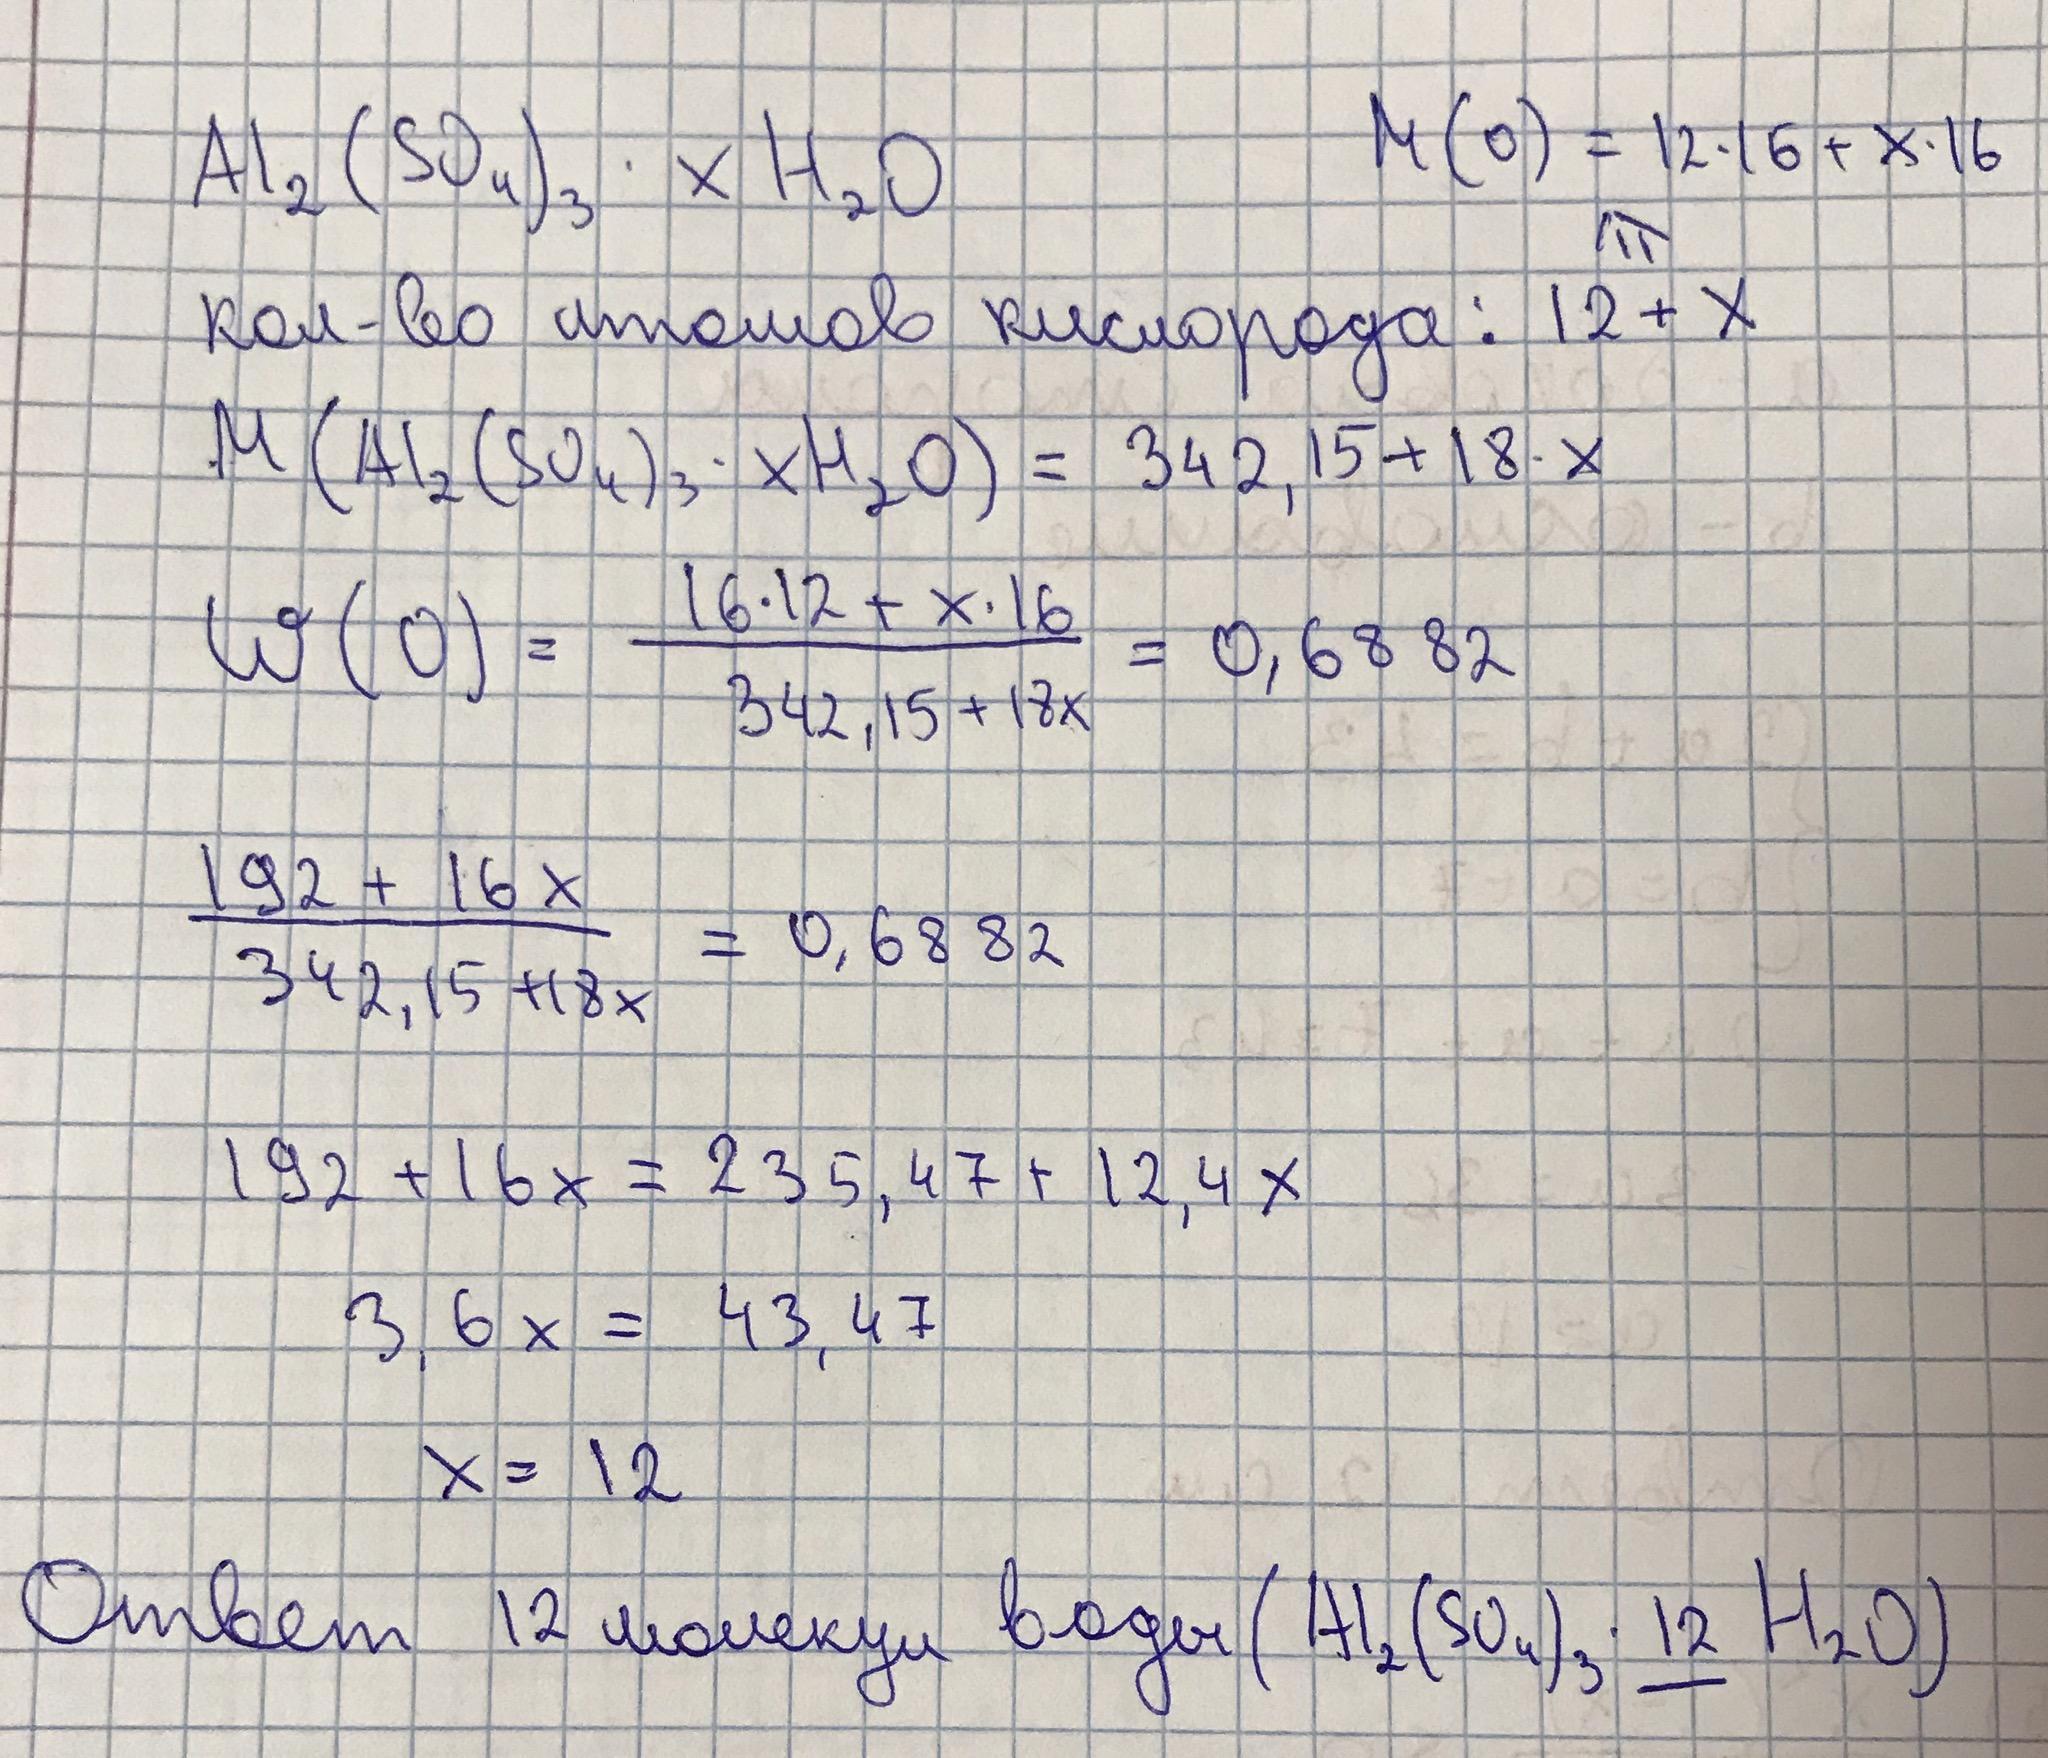 Al₂(SO₄)₃ · x H₂O
M(O) = 12·16 + x·16
⇑
кол-во атомов кислорода: 12 + x
M(Al₂(SO₄)₃ · xH₂O) = 342,15 + 18·x
W(O) = (16·12 + x·16)/(342,15 + 18x) = 0,6882
(192 + 16x)/(342,15 + 18x) = 0,6882
192 + 16x = 235,47 + 12,4x
3,6x = 43,47
x = 12
Ответ 12 молекул воды (Al₂(SO₄)₃ · 12 H₂O)